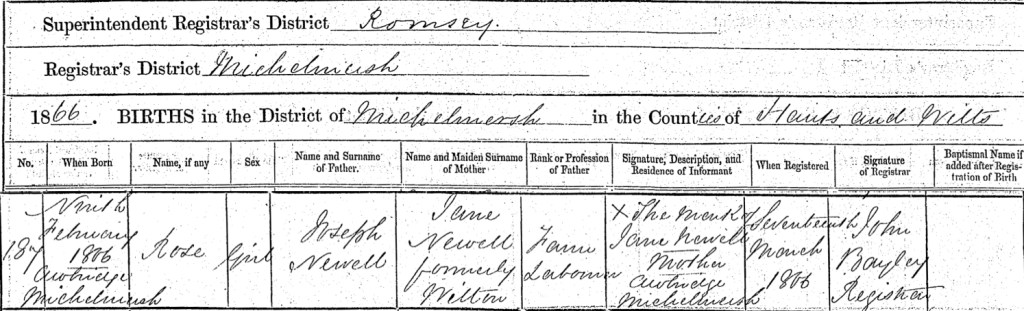 Superintendent Registrar's District Romsey.
Registrar's District Michelmersh
1866. BIRTHS in the District of Michelmersh in the Counties of Hants and Wilts
No. When Born Name, if any Sex Name and Surname of Father. Name and Maiden Surname of Mother Rank or Profession of Father Signature, Description, and Residence of Informant When Registered Signature of Registrar Baptismal Name if added after Registration of Birth
187 Ninth February 1866 Awbridge Michelmersh
Rose
Girl
Joseph Newell
Jane Newell formerly Wilton
Farm Labourer
X The mark of Jane Newell Mother Awbridge Michelmersh
Seventeenth March 1866
John Bayley Registrar